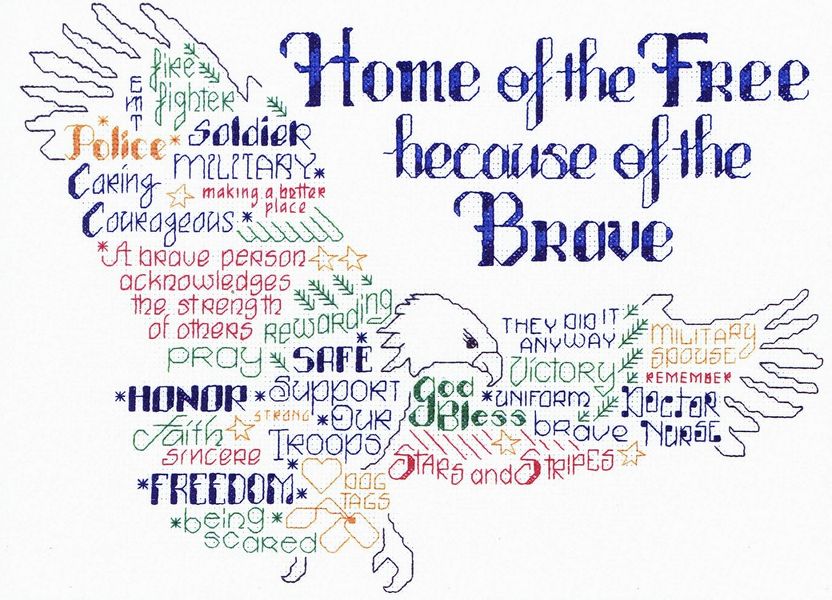 Home of the Free
because of the
Brave
fire
fighter
EMT
Police
Soldier
MILITARY
Caring
making a better
place
Courageous
A brave person
acknowledges
the strength
of others
rewarding
pray
SAFE
HONOR
Support
Our
Troops
STRONG
Faith
sincere
FREEDOM
DOG
TAGS
being
scared
God
Bless
THEY DID IT
ANYWAY
Victory
MILITARY
SPOUSE
REMEMBER
UNIFORM
Doctor
brave
NURSE
STARS and STRIPES